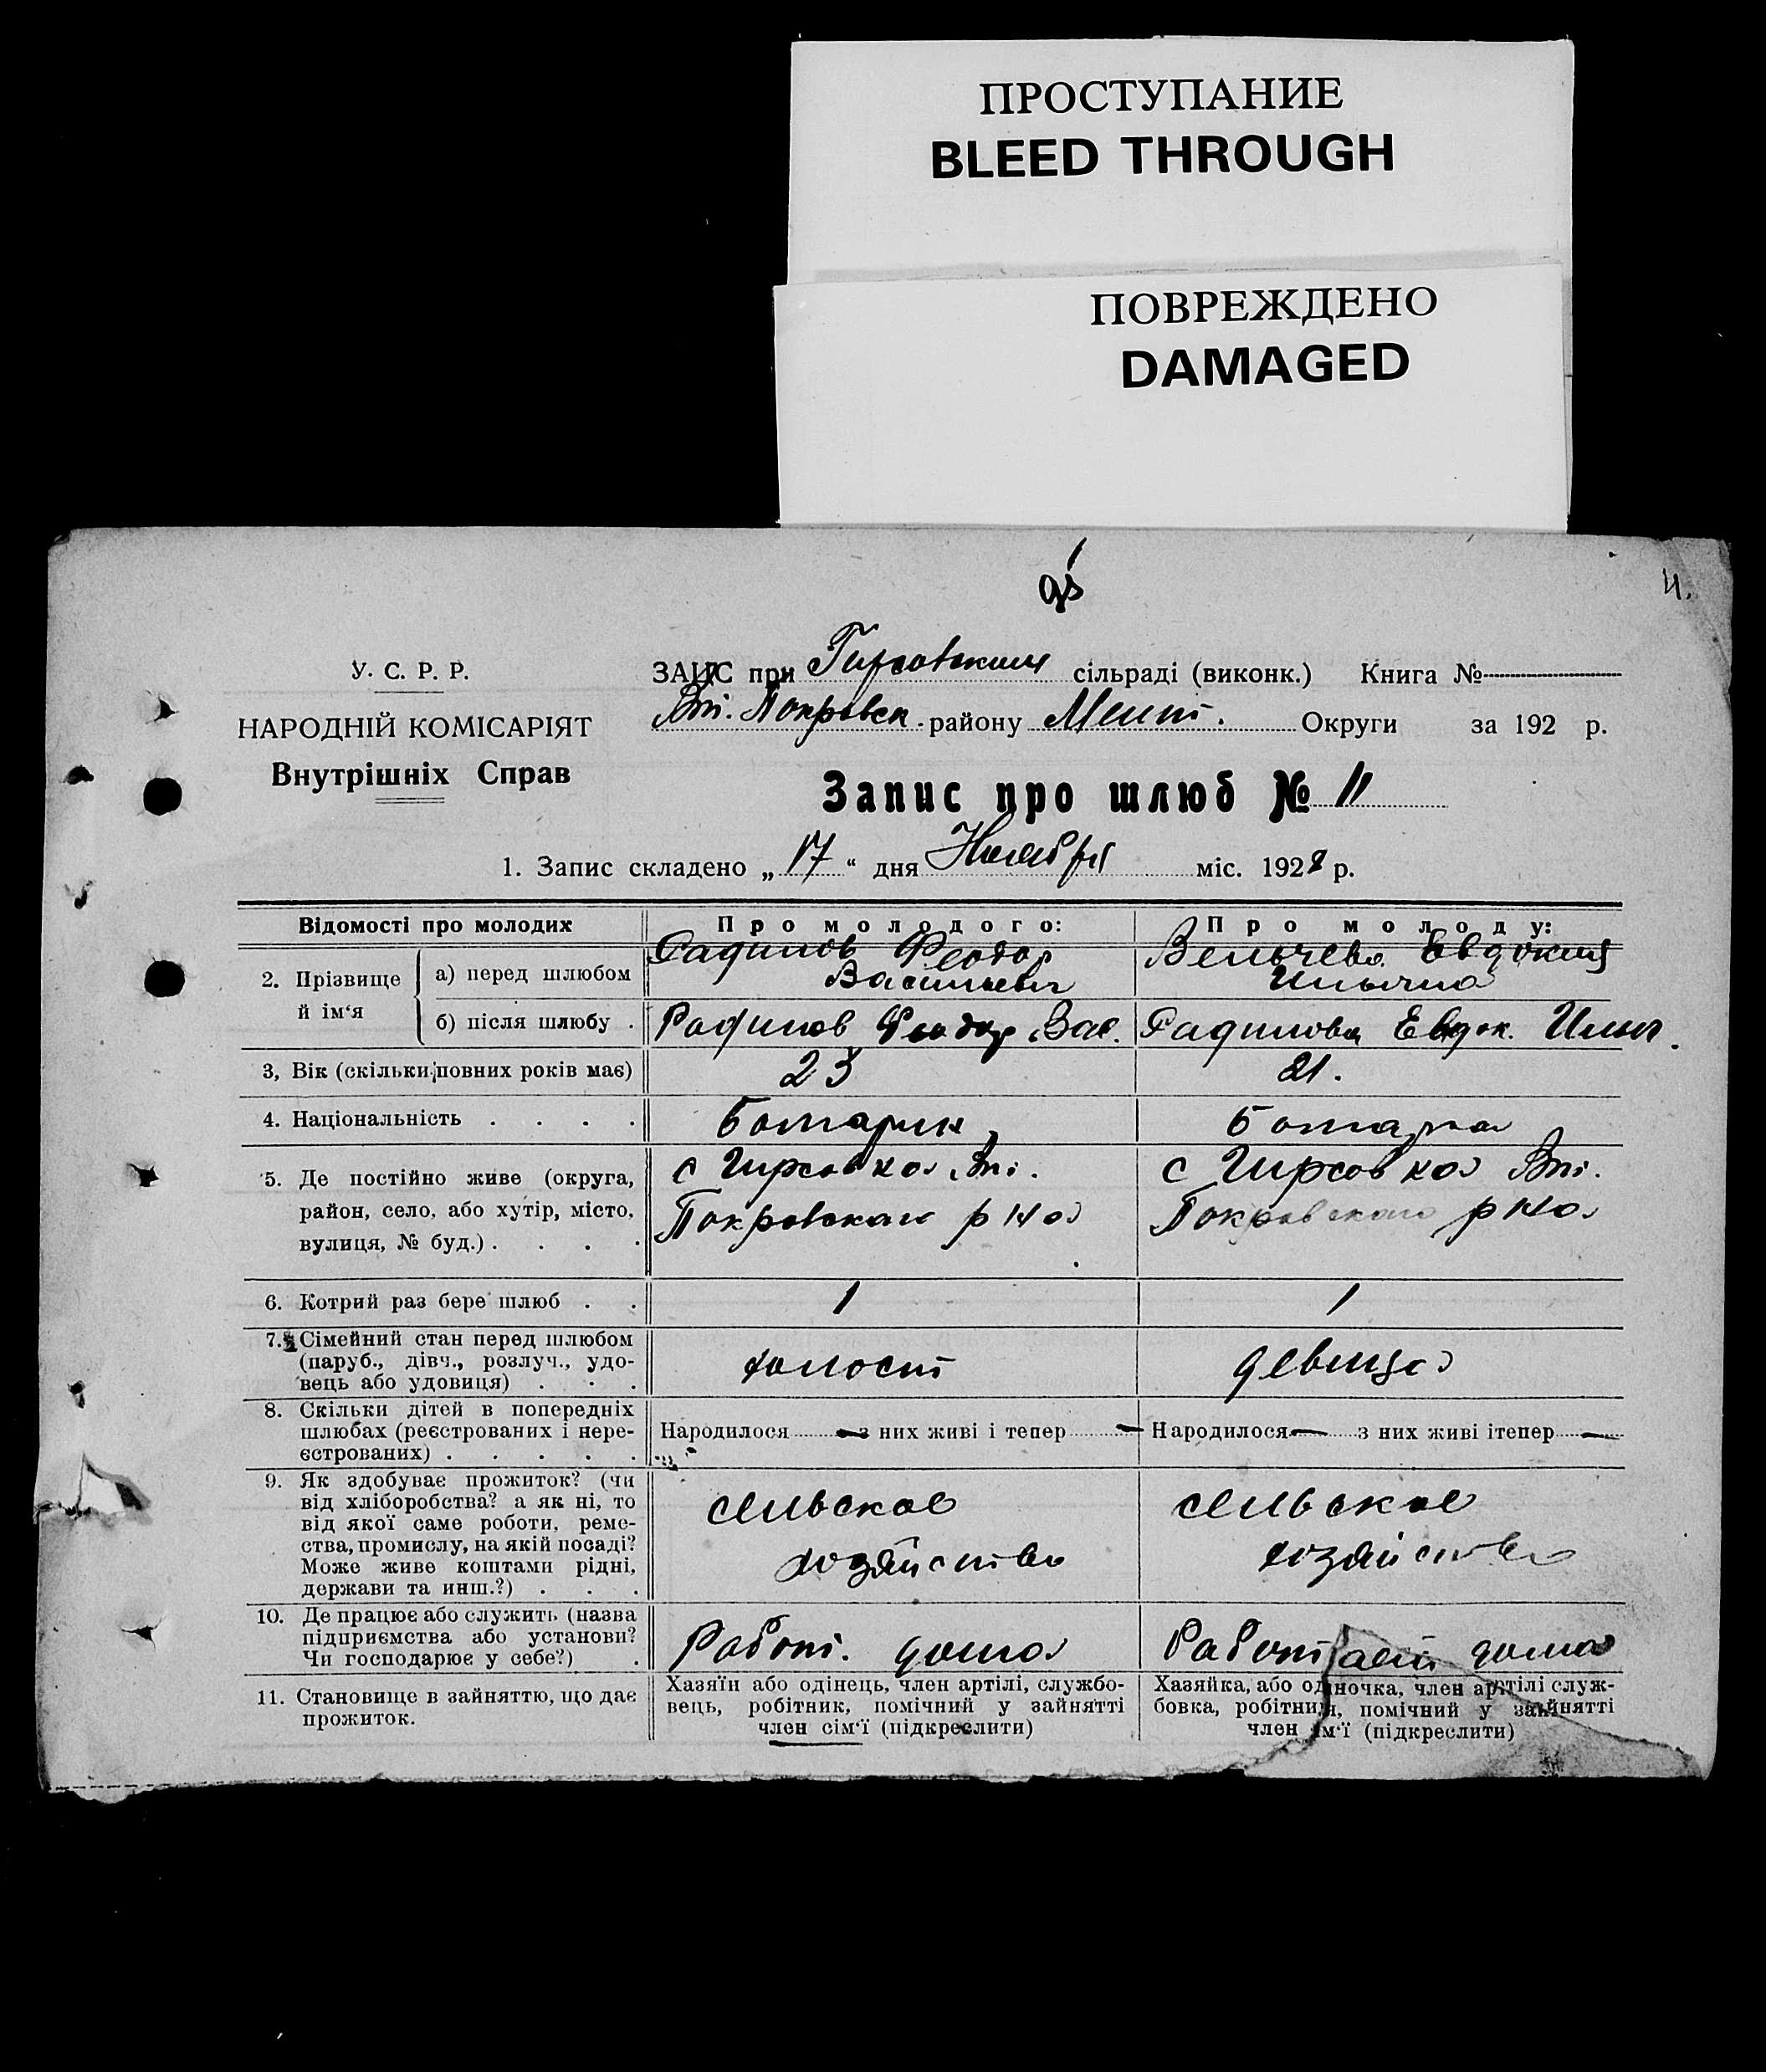 ПРОСТУПАНИЕ
BLEED THROUGH
ПОВРЕЖДЕНО
DAMAGED
У. С. Р. Р.
НАРОДНІЙ КОМІСАРІЯТ
Внутрішніх Справ
ЗАПИС при Гирсовским сільраді (виконк.) Книга №
Вт. Покровск. району Мелит. Округи за 192 р.
Запис про шлюб № 11
1. Запис складено „ 17 “ дня Ноября міс. 1928 р.
Відомості про молодих Про молодого: Про молоду:
2. Прізвище й ім‘я
а) перед шлюбом Радилов Феодор Васильевич Вельчева Евдокия Ильична
б) після шлюбу . Радилов Феодор Вас. Радилова Евдок. Ильи.
3, Вік (скільки повних років має) 23 21.
4. Національність . . . . Болгарин Болгарка
5. Де постійно живе (округа, с Гирсовка Вт. с Гирсовка Вт.
район, село, або хутір, місто, Покровскаго рна Покровскаго рна
вулиця, № буд.) . . . .
6. Котрий раз бере шлюб . . 1 1
7. Сімейний стан перед шлюбом
(паруб., дівч., розлуч., удо- холост девица
вець або удовиця) . . .
8. Скільки дітей в попередніх
шлюбах (реєстрованих і нере- Народилося — з них живі і тепер — Народилося — з них живі ітепер —
єстрованих) . . . . .
9. Як здобуває прожиток? (чи
від хліборобства? а як ні, то сельское сельское
від якої саме роботи, реме-
ства, промислу, на якій посаді? хозяйство хозяйство
Може живе коштами рідні,
держави та инш.?) . . .
10. Де працює або служить (назва
підприємства або установи? Работ. дома Работает дома
Чи господарює у себе?) .
11. Становище в зайняттю, що дає
прожиток.
Хазяїн або одінець, член артілі, службо-
вець, робітник, помічний у зайнятті
член сім‘ї (підкреслити)
Хазяйка, або одіночка, член артілі служ-
бовка, робітниця, помічний у зайнятті
член сім‘ї (підкреслити)